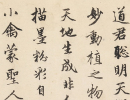 道君聰明天
妙動植之物
天地生成非
描墨粉彩自
小倫蒙聖人